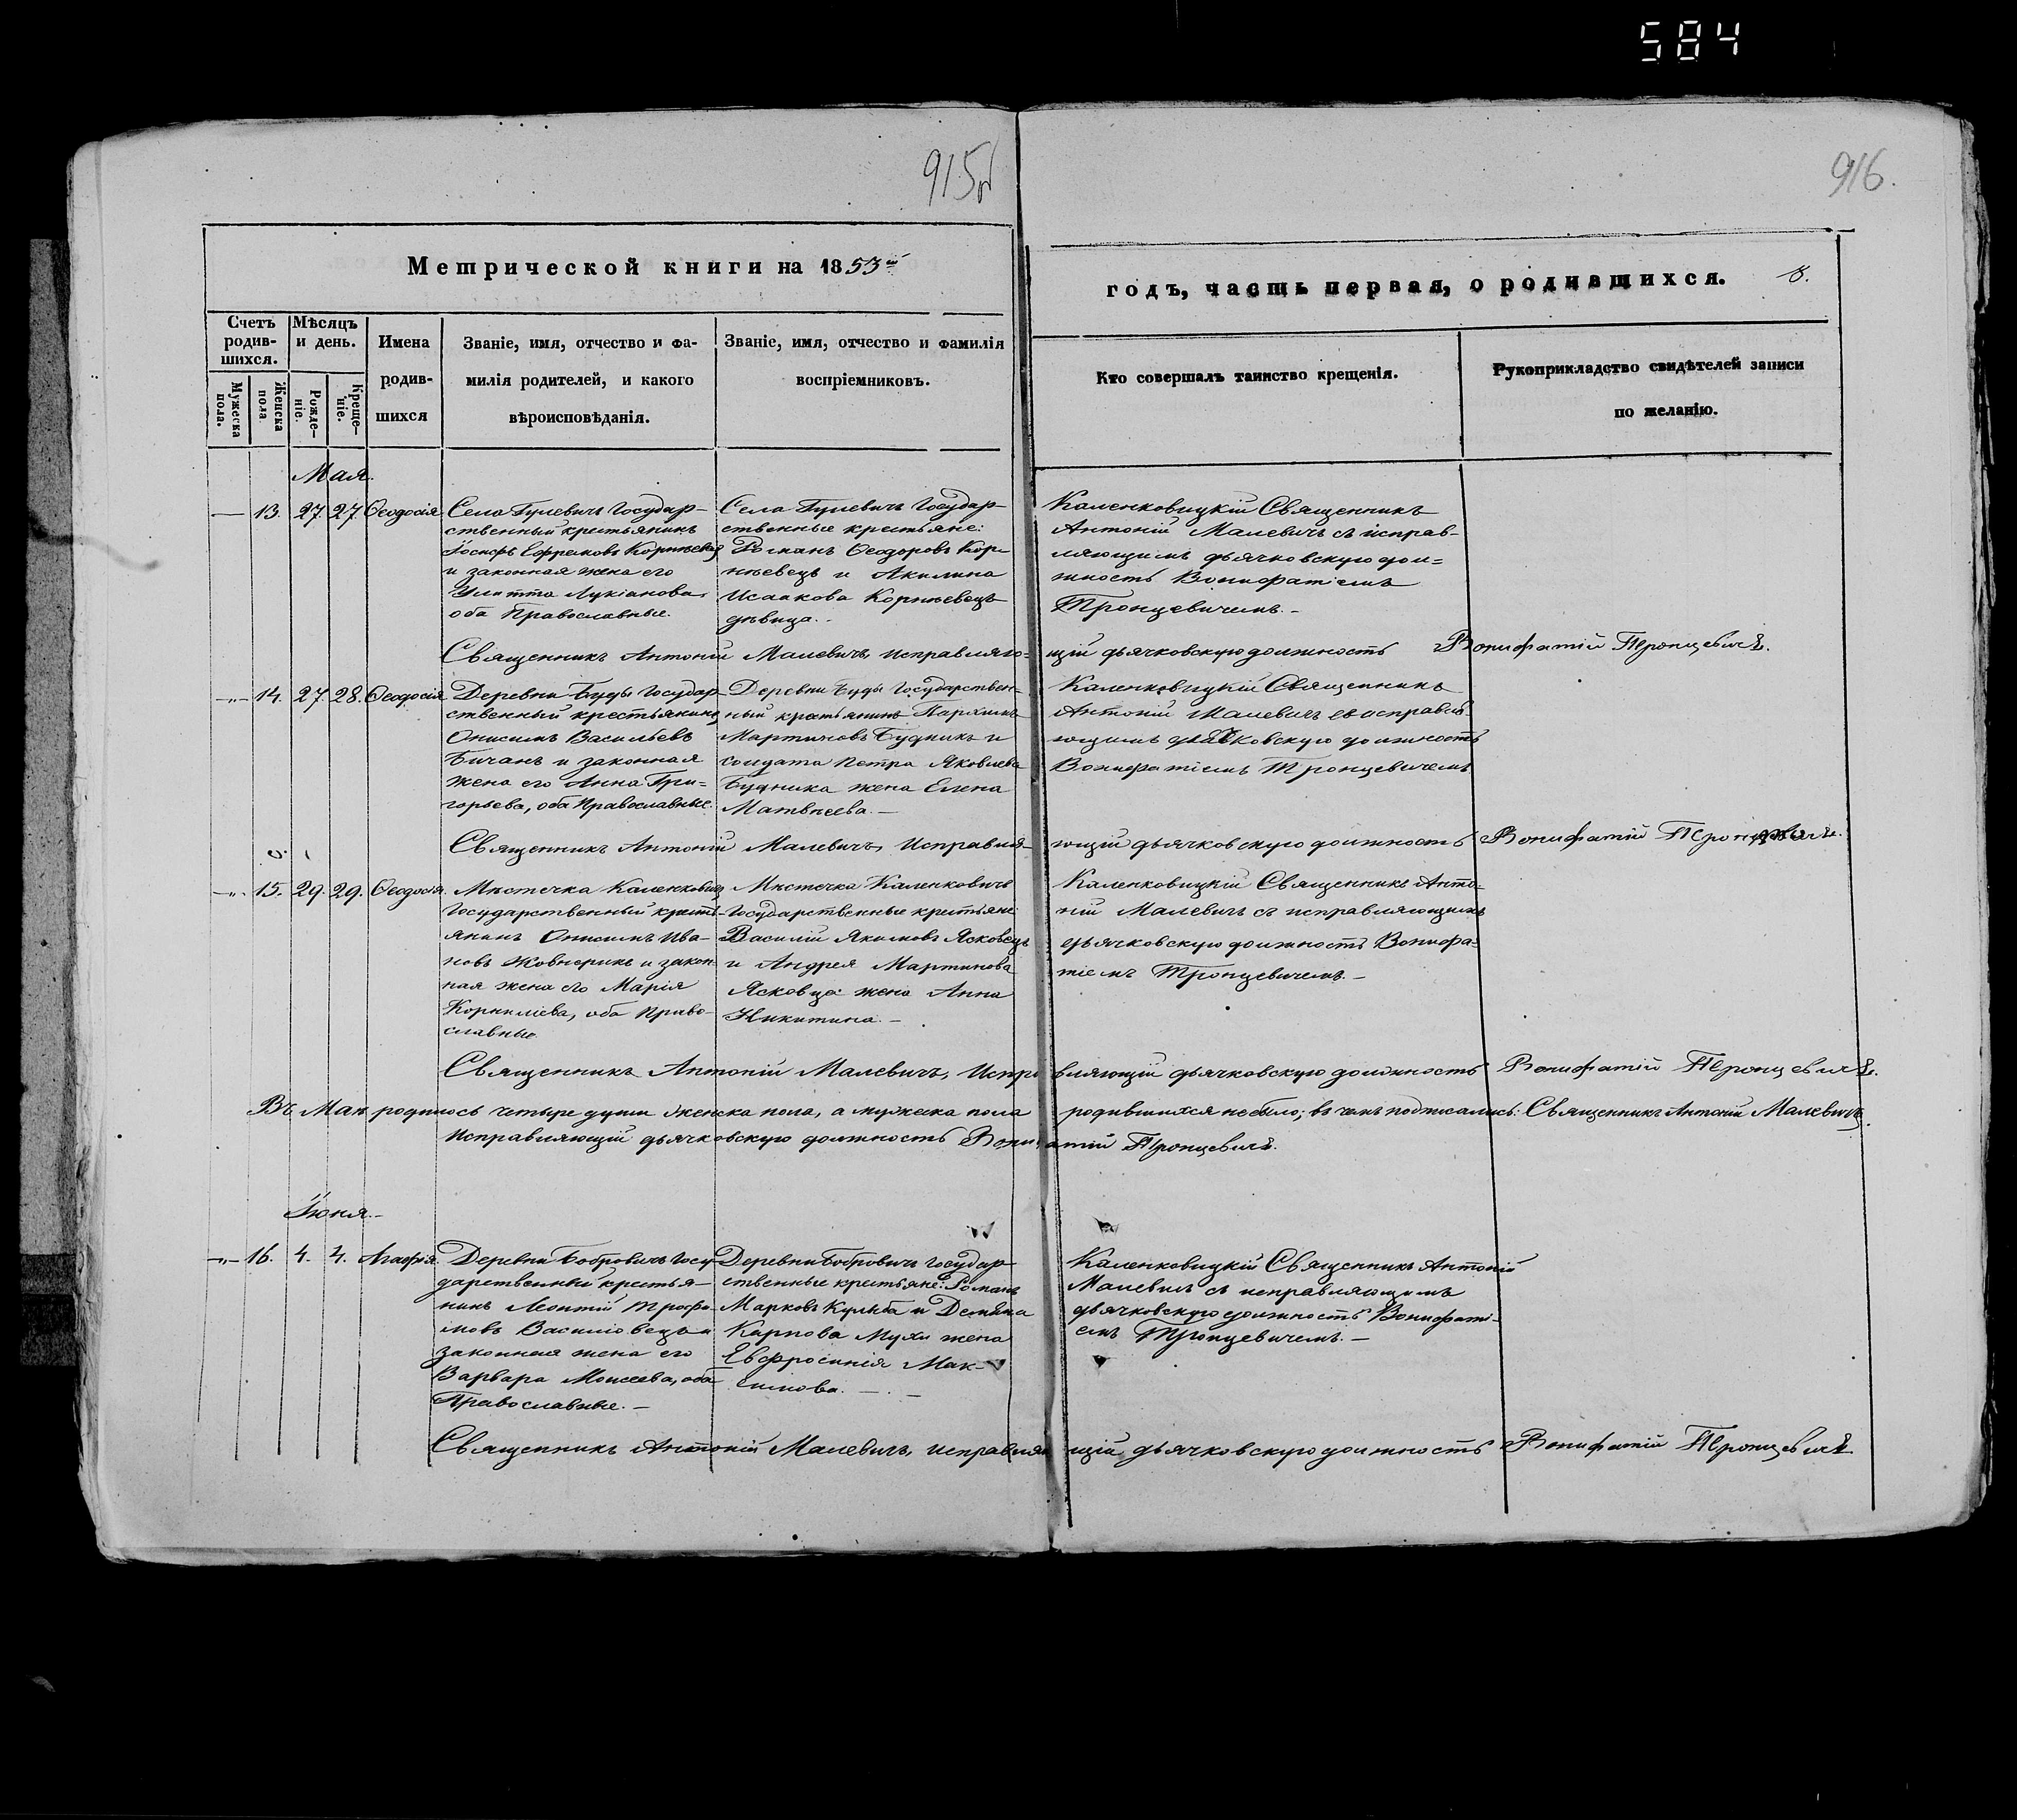 584
915б
916.
Метрической книги на 1853й
годъ, часть первая, о родившихся.
8.
Счетъ родившихся.
Мужеска пола.
Женска пола
Мѣсяцъ и день.
Рожденіе.
Крещеніе.
Имена родившихся
Званіе, имя, отчество и фамилія родителей, и какого вѣроисповѣданія.
Званіе, имя, отчество и фамилія воспріемниковъ.
Кто совершалъ таинство крещенія.
Рукоприкладство свидѣтелей записи по желанію.
Мая.
— 13. 27. 27. Ѳеодосія
Села Гулевичъ Государ-
ственный крестьянинъ
Іосифъ Ефремовъ Корнѣевецъ
и законная жена его
Улитта Лукіанова,
оба Православные.
Села Гулевичъ Государ-
ственные крестьяне:
Романъ Ѳеодоровъ Кор-
нѣевецъ и Акилина
Исаакова Корнѣевецъ
дѣвица.
Каленковицкій Священникъ
Антоній Малевичъ съ исправ-
ляющимъ дьячковскую дол-
жность Вонифатіемъ
Тронцевичемъ. —
Священникъ Антоній Малевичъ, исправляю-
щій дьячковскую должность Вонифатій Тронцевичъ.
—„— 14. 27. 28. Ѳеодосія
Деревни Буды Государ-
ственный крестьянинъ
Онисимъ Васильевъ
Бичанъ и законная
жена его Анна Гри-
горьева, оба Православные.
Деревни Буды Государствен-
ный крестьянинъ Пархимъ
Мартиновъ Будникъ и
солдата Петра Яковлева
Будника жена Елена
Матвѣева. —
Каленковицкій Священникъ
Антоній Малевичъ съ исправля-
ющимъ дьячковскую должность
Вонифатіемъ Тронцевичемъ
Священникъ Антоній Малевичъ, Исправля-
ющій дьячковскую должность Вонифатій Тронцевичъ.
—„— 15. 29. 29. Ѳеодосія.
Мѣстечка Каленковичъ
Государственный кресть-
янинъ Онисимъ Ива-
новъ Жовнерикъ и закон-
ная жена его Марія
Корниліева, оба Право-
славные
Мѣстечка Каленковичъ
Государственные крестьяне:
Василій Якимовъ Ясковецъ
и Андрея Мартинова
Ясковца жена Анна
Никитина. —
Каленковицкій Священникъ Анто-
ній Малевичъ съ исправляющимъ
дьячковскую должность Вонифа-
тіемъ Тронцевичемъ. —
Священникъ Антоній Малевичъ, Испра-
вляющій дьячковскую должность Вонифатій Тронцевичъ.
Въ Маѣ родилось четыре души женска пола, а мужеска пола родившихся не было; въ чемъ подписались: Священникъ Антоній Малевичъ,
Исправляющій дьячковскую должность Вонифатій Тронцевичъ.
Іюня. —
—„— 16. 4. 4. Агафія.
Деревни Бобровичъ Госу-
дарственный крестья-
нинъ Леонтій Трофи-
мовъ Василовецъ и
законная жена его
Варвара Моисеева, оба
Православные. —
Деревни Бобровичъ Государ-
ственные крестьяне: Романъ
Марковъ Кульба и Демьяна
Карпова Мухи жена
Евфросинія Мак-
симова. — . —
Каленковицкій Священникъ Антоній
Малевичъ съ исправляющимъ
дьячковскую должность Вонифаті-
емъ Тронцевичемъ. —
Священникъ Антоній Малевичъ, исправляю-
щій дьячковскую должность Вонифатій Тронцевичъ